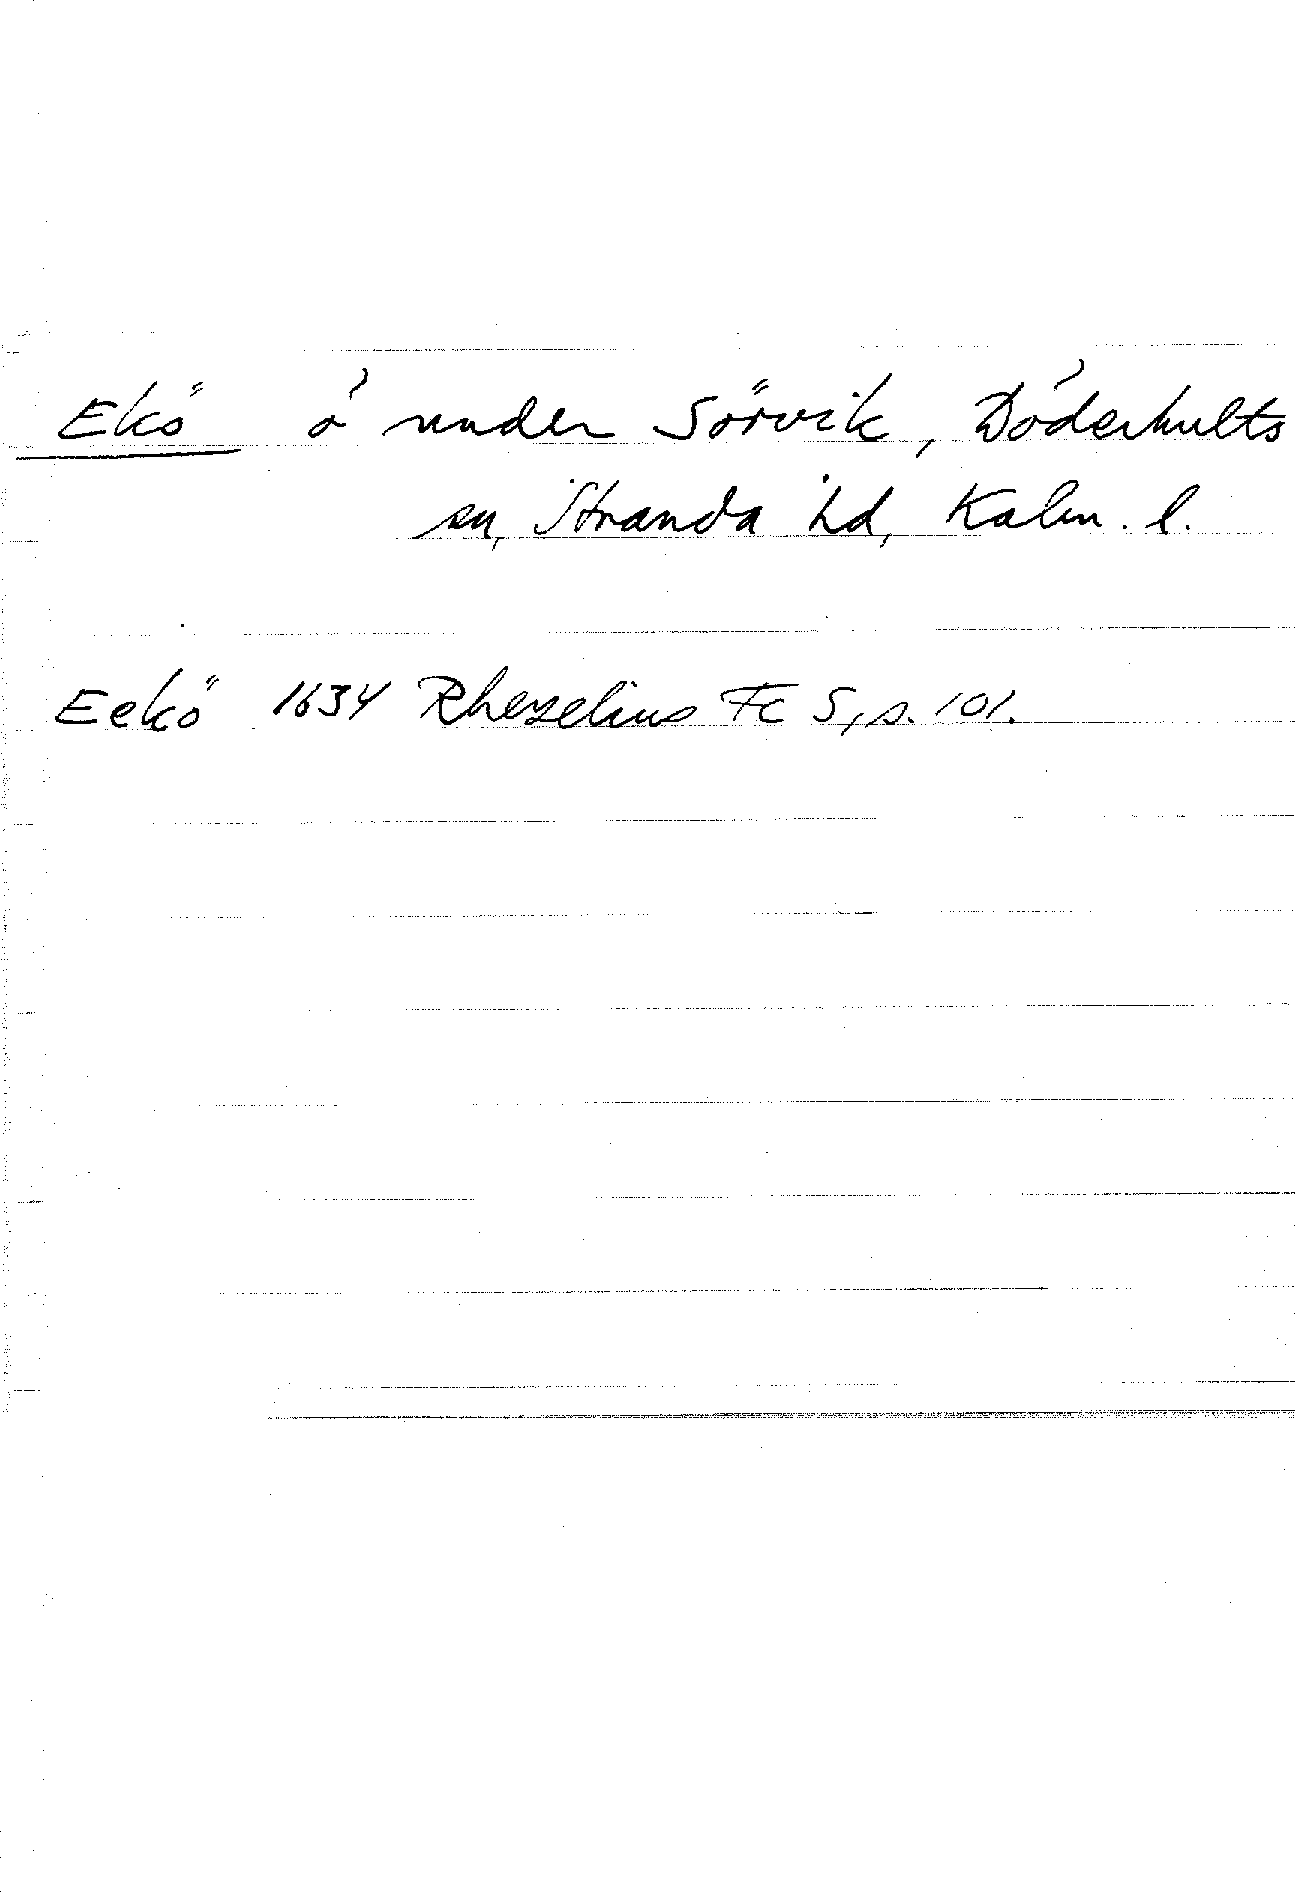 Ekö ö under Sörvik, Döderhults
sn, Stranda hd, Kalm. l.
Eekö 1634 Rhezelius Fc 5, s. 101.